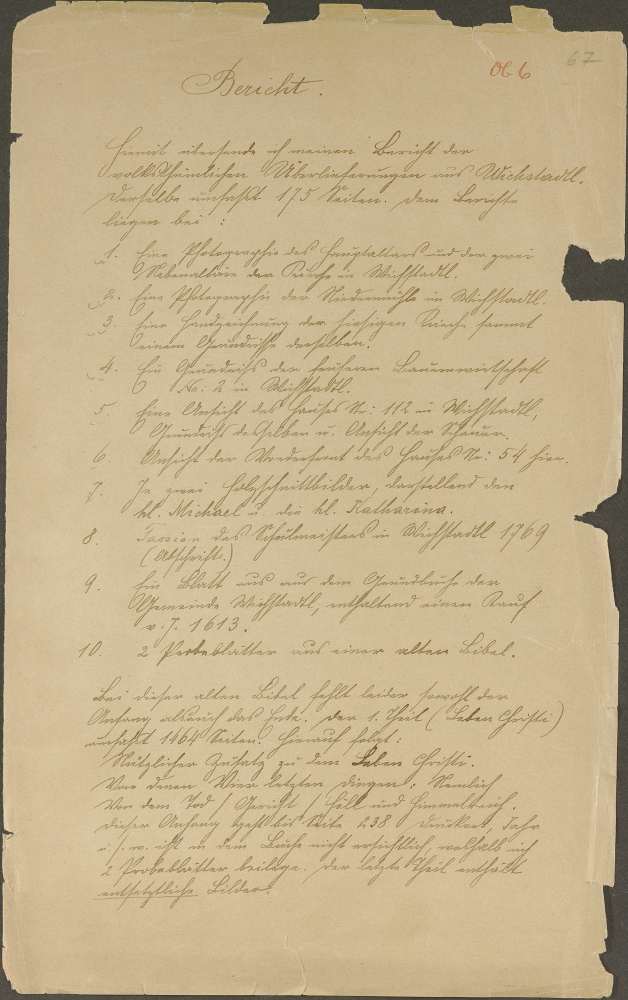 OG 6
67
Bericht.
Hiemit übersende ich meinen Bericht der
volksthümlichen Überlieferungen aus Wichstadtl.
Derselbe umfaßt 175 Seiten. Dem Berichte
liegen bei:
1. Eine Photographie des Hauptaltars und der zwei
Nebenaltäre der Kirche in Wichstadtl.
2. Eine Photographie der Niedermühle in Wichstadtl.
3. Eine Handzeichnung der hiesigen Kirche sammt
einem Grundrisse derselben.
4. Ein Grundriß der früheren Bauernwirtschaft
No: 2 in Wichstadtl.
5. Eine Ansicht des Hauses Nr: 112 in Wichstadtl,
Grundriß desselben u. Ansicht der Scheuer.
6. Ansicht der Vorderfront des Hauses Nr: 54 hier.
7. Je zwei Holzschnittbilder, darstellend den
hl. Michael u. die hl. Katharina.
8. Fassion des Schulmeisters in Wichstadtl 1769
(Abschrift.)
9. Ein Blatt aus aus dem Grundbuche der
Gemeinde Wichstadtl, enthaltend einen Kauf
v. J. 1613.
10. 2 Probeblätter aus einer alten Bibel.
Bei dieser alten Bibel fehlt leider sowohl der
Anfang als auch das Ende. Der 1. Theil (Leben Christi)
umfaßt 1464 Seiten. Hierauf folgt:
Nützlicher Zusatz zu dem Leben Christi.
Von denen Vier letzten Dingen: Nemlich
Von dem Tod / Gericht / Höll und Himmelreich.
Dieser Anhang geht bis Seite 238. Druckort, Jahr
u. s. w. ist in dem Buche nicht ersichtlich, weshalb ich
2 Probeblätter beilege. Der letzte Theil enthält
entsetzliche Bilder.